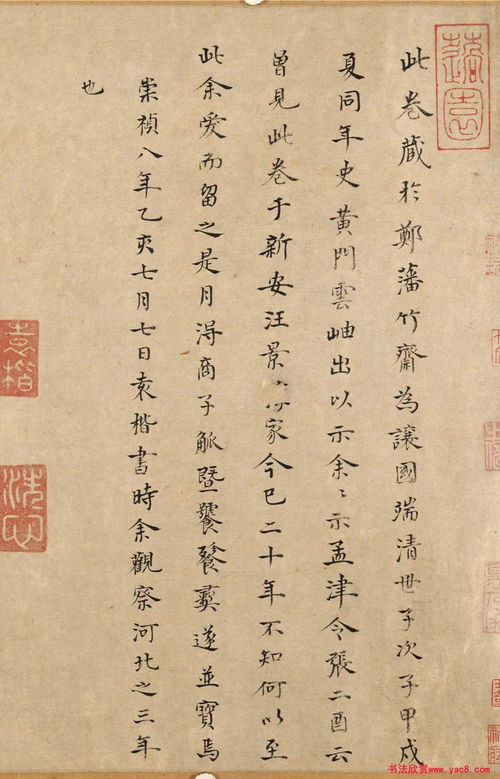 此卷藏於鄭藩竹齋為讓國端清世子次子甲戌
夏同年史黃門雲岫出以示余〻示孟津令張二酉云
曾見此卷于新安汪景家今已二十年不知何以至
此余愛而留之是月淂商子觚暨饕餮彝遂並寶焉
崇禎八年乙亥七月七日袁楷書時余觀察河北之三年
也
袁楷
书法欣赏www.yac8.com